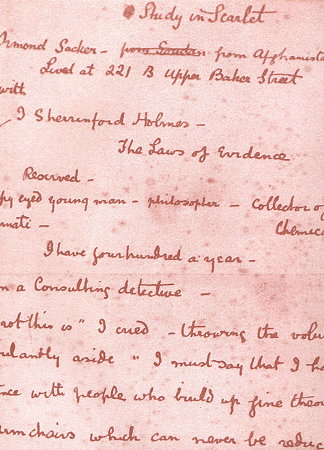 Study in Scarlet
Ormond Sacker – from Soudan from Afghanista
Lived at 221 B Upper Baker Street
with
I Sherrinford Holmes –
The Laws of Evidence
Reserved –
py eyed young man – philosopher – Collector of
Chemica
I have four hundred a year –
m a Consulting detective –
rot this is" I cried – throwing the volu
ulantly aside " I must say that I ha
nce with people who build up fine theor
armchairs which can never be reduc